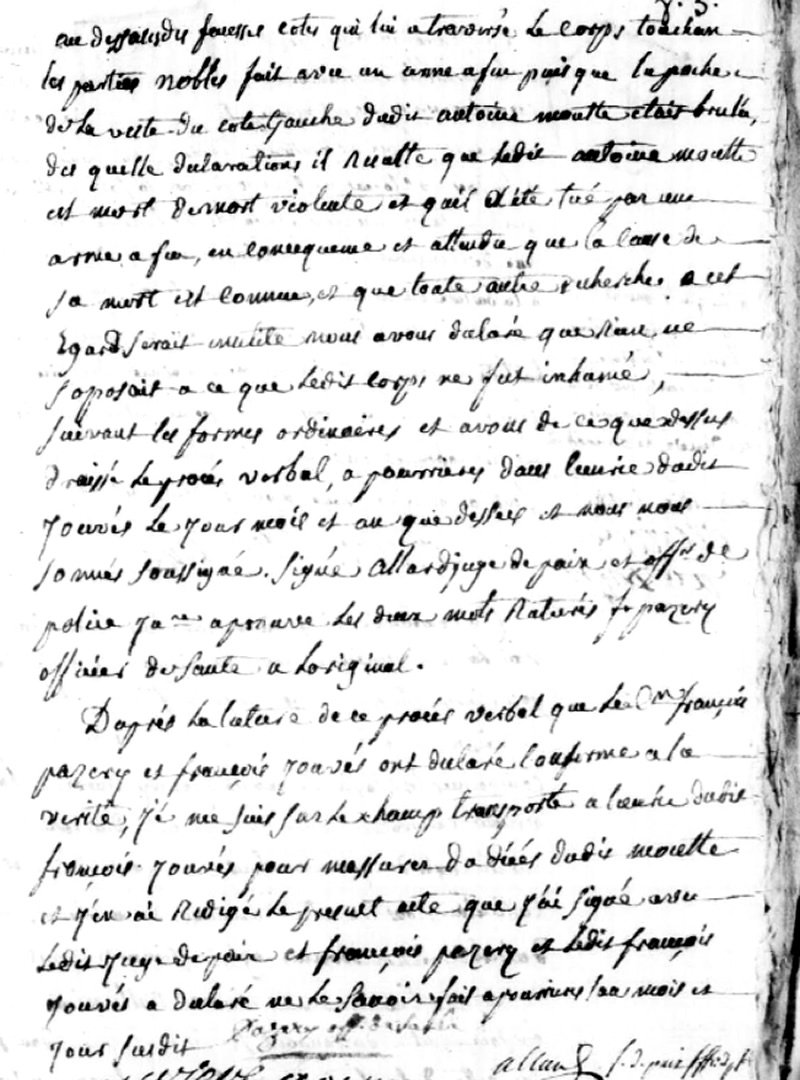 au dessous des fauesses cotes qui lui a traversé Le Corps touchan
les parties nobles fait avec un arme a feu puis que la poche
de La veste du cote Gauche dudit antoine moutte etait brulée,
des quelle declarations il Resulte que Ledit antoine moutte
est mort de mort violente et quil a été tué par une
arme a feu, en Consequence et attendu que la Cause de
sa mort est Connue, et que toute autre recherche a cet
Egard serait inutile nous avons declaré que Rien ne
soposait a ce que Ledit Corps ne fut inhumé,
suivant les formes ordinaires et avons de ce que dessus
draissé Le procés verbal, a pourrieres dans lecurie dudit
Jouvés Le Jour mois et an que dessus et nous nous
sommés soussigné. signé allard Juge de paix et offer de
police Ja.ne aprouve Les deux mots Raturés fs pazery
officier de santé a Loriginal.
Daprés La lecture de ce procés verbal que Le Cen françois
pazery et françois Jouvés ont declaré Conforme a la
verité, Jé me suis sur Le champ transporté a lecurie dudit
françois Jouvés pour massurer du décés dudit moutte
et Jén ai Redigé Le present acte que Jái signé avec
Ledit Juge de paix et françois pazery et Ledit françois
Jouvés a declaré ne Le savoir fait a pourrieres Lan mois et
Jour susdit
pazery off. de santé
allard J. d. paix